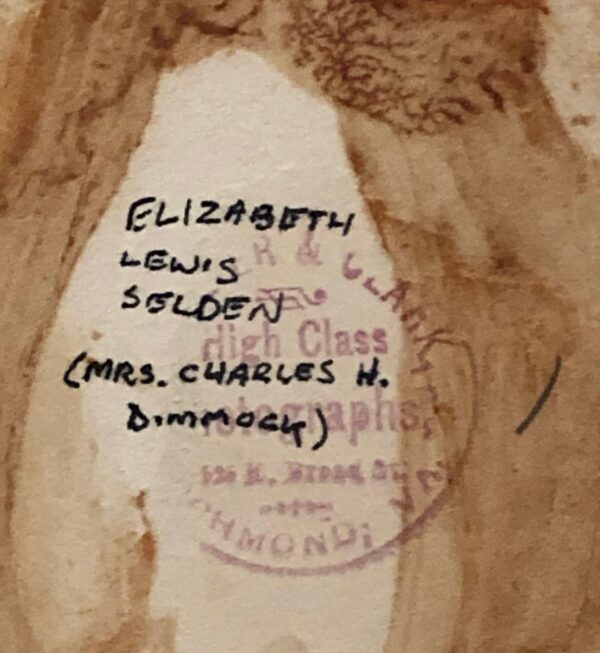 ELIZABETH
LEWIS
SELDEN
(MRS. CHARLES H.
DIMMOCK)
& CLARK
High Class
Photographs,
E. Broad St.
RICHMOND, VA